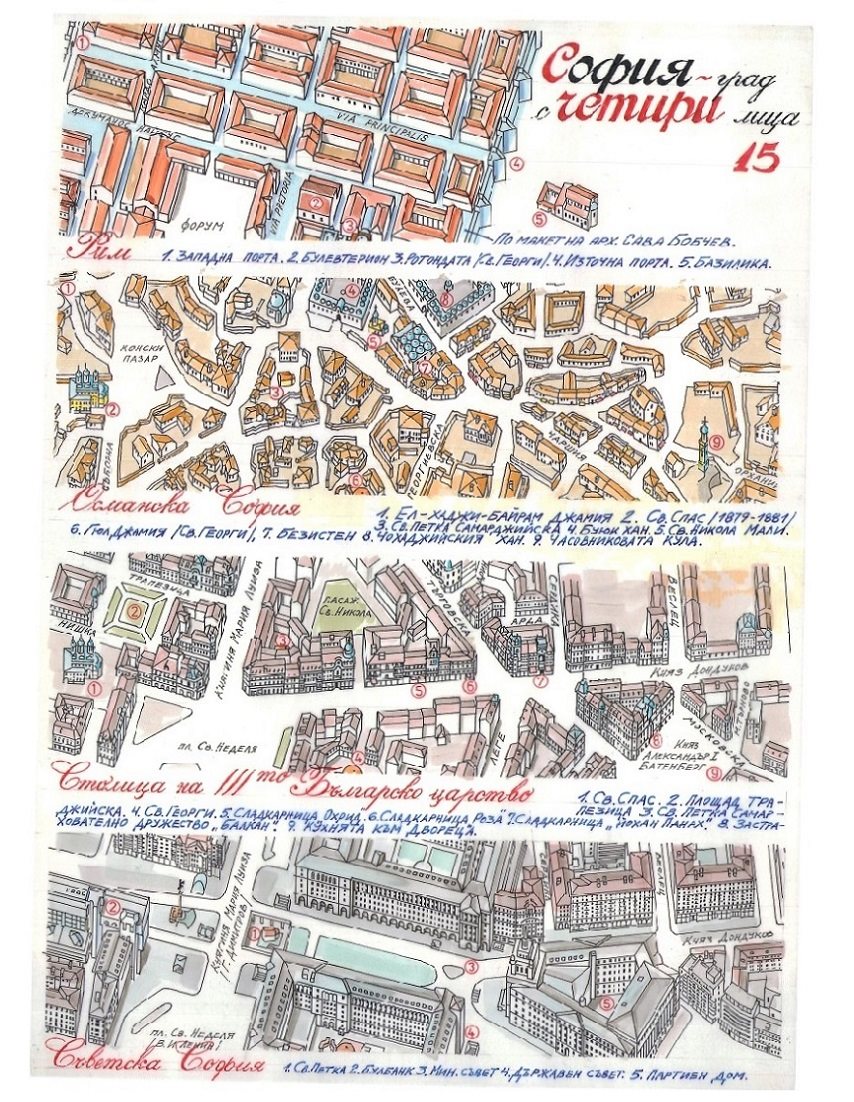 София - град
с четири лица
15
①
ДЕКУМАНУС
VIA PRINCIPALIS
④
VIA PRETORIA
②
③
⑤
ФОРУМ
По макет на арх. Сава Бобчев.
Рим
1. Западна порта. 2. Булевтерион 3. Ротондата /Св. Георги/. 4. Източна порта. 5. Базилика.
①
④
⑧
БУХЕВА
⑤
КОНСКИ
ПАЗАР
⑦
③
②
⑨
ЧАРШИЯ
ГЕОРГИЕВСКА
⑥
Османска София
1. Ел-Хаджи-Байрам джамия 2. Св. Спас /1879-1881/
3. Св. Петка Самарджийска 4. Буюк хан. 5. Св. Никола Мали.
6. Гюл джамия /Св. Георги/, 7. Безистен 8. Чохаджийския хан. 9. Часовниковата кула.
ТРАПЕЗИЦА
②
НИШКА
КНЯГИНЯ МАРИЯ ЛУИЗА
ПАСАЖ
Св. НИКОЛА
③
ТЪРГОВСКА
⑥
СЕРДИКА
АРДА
ВЕСЛЕЦ
КНЯЗ ДОНДУКОВ
①
⑤
⑦
МОСКОВСКА
пл. Св. НЕДЕЛЯ
④
ЛЕГЕ
⑥
КНЯЗ
АЛЕКСАНДЪР I
БАТЕНБЕРГ
⑨
Столица на III то Българско царство
1. Св. Спас. 2. Площад Тра-
пезица 3. Св. Петка Самар-
джийска. 4. Св. Георги. 5. Сладкарница „Охрид“. 6. Сладкарница „Роза“. 7. Сладкарница „Йохан Панах“. 8. Застра-
хователно дружество „Балкан“. 9. Кухнята към Двореца.
②
КНЯГИНЯ МАРИЯ ЛУИЗА
Г. ДИМИТРОВ
①
КНЯЗ ДОНДУКОВ
③
⑤
пл. Св. НЕДЕЛЯ
/В. И. ЛЕНИН/
④
Съветска София
1. Св. Петка 2. Булбанк 3. Мин. съвет 4. Държавен съвет. 5. Партиен дом.